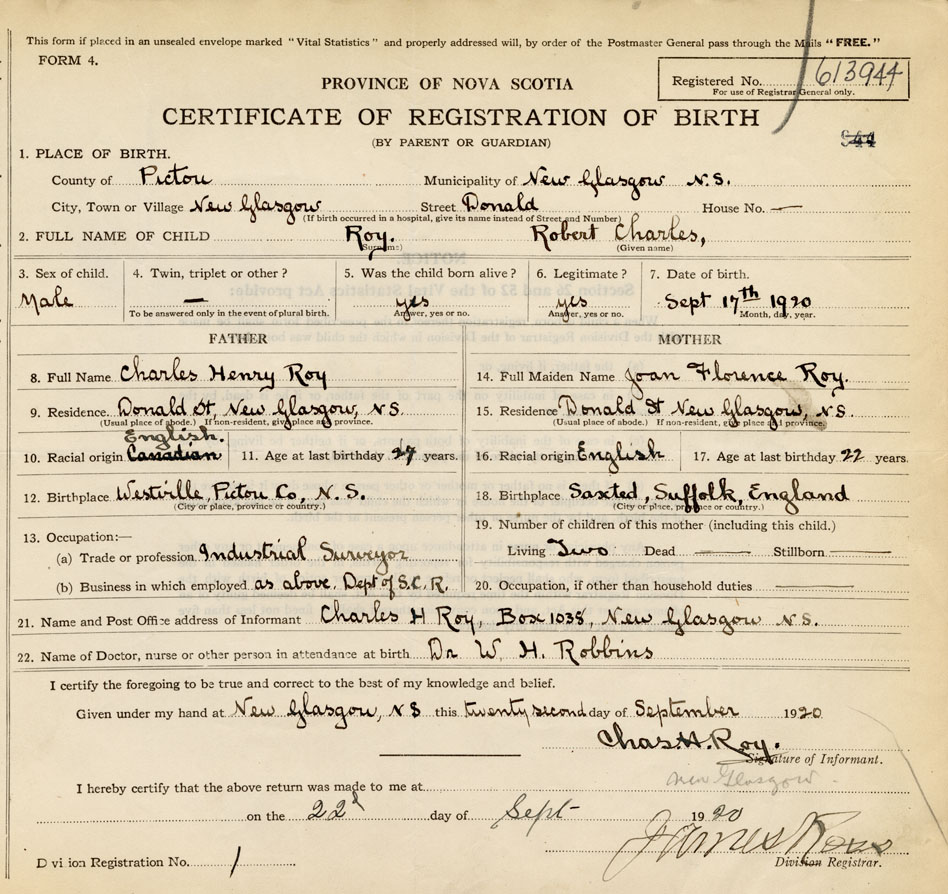 This form if placed in an unsealed envelope marked "Vital Statistics" and properly addressed will, by order of the Postmaster General pass through the Mails "FREE."
FORM 4.
Registered No. 613944
For use of Registrar General only.
PROVINCE OF NOVA SCOTIA
CERTIFICATE OF REGISTRATION OF BIRTH
(BY PARENT OR GUARDIAN)
944
1. PLACE OF BIRTH.
County of Pictou Municipality of New Glasgow N.S.
City, Town or Village New Glasgow Street Donald House No. —
(If birth occurred in a hospital, give its name instead of Street and Number)
2. FULL NAME OF CHILD Roy. Robert Charles,
(Surname) (Given name)
3. Sex of child. 4. Twin, triplet or other? 5. Was the child born alive? 6. Legitimate? 7. Date of birth.
Male — yes yes Sept 17th 1920
To be answered only in the event of plural birth. Answer, yes or no. Answer, yes or no. Month, day, year.
FATHER MOTHER
8. Full Name Charles Henry Roy 14. Full Maiden Name Joan Florence Roy.
9. Residence. Donald St, New Glasgow, N.S. 15. Residence Donald St New Glasgow, N.S.
(Usual place of abode.) If non-resident, give place and province. (Usual place of abode.) If non-resident, give place and province.
English.
10. Racial origin Canadian 11. Age at last birthday 27 years. 16. Racial origin English 17. Age at last birthday 22 years.
12. Birthplace Westville, Pictou Co, N.S. 18. Birthplace Saxted, Suffolk, England
(City or place, province or country.) (City or place, province or country.)
19. Number of children of this mother (including this child.)
13. Occupation:—
(a) Trade or profession Industrial Surveyor Living Two Dead — Stillborn —
(b) Business in which employed as above, Dept of S.C.R. 20. Occupation, if other than household duties —
21. Name and Post Office address of Informant Charles H Roy, Box 1038, New Glasgow N.S.
22. Name of Doctor, nurse or other person in attendance at birth Dr W. H. Robbins
I certify the foregoing to be true and correct to the best of my knowledge and belief.
Given under my hand at New Glasgow, N S this twenty second day of September 1920
Chas. H. Roy.
Signature of Informant.
New Glasgow.
I hereby certify that the above return was made to me at
on the 22d day of Sept 1920
James
Division Registrar.
D vi ion Registration No. 1